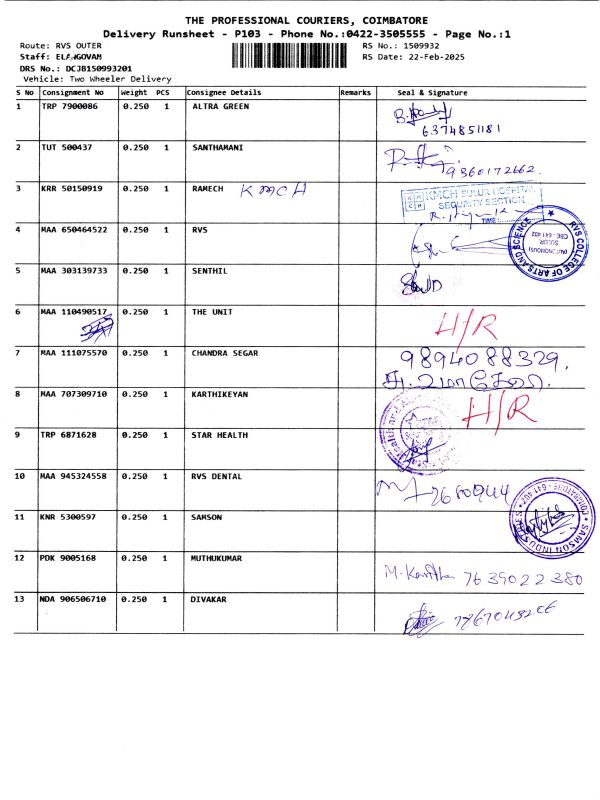 THE PROFESSIONAL COURIERS, COIMBATORE
Delivery Runsheet - P103 - Phone No.:0422-3505555 - Page No.:1
Route: RVS OUTER RS No.: 1509932
Staff: ELANGOVAN RS Date: 22-Feb-2025
DRS No.: DCJB150993201
Vehicle: Two Wheeler Delivery
S No Consignment No Weight PCS Consignee Details Remarks Seal & Signature
1 TRP 7900086 0.250 1 ALTRA GREEN
6374851181
2 TUT 500437 0.250 1 SANTHAMANI
9360172662.
3 KRR 50150919 0.250 1 RAMECH KMCH KMCH SULUR HOSPITAL
SECURITY SECTION
TIME:
4 MAA 650464522 0.250 1 RVS
RVS COLLEGE OF ARTS AND SCIENCE
(AUTONOMOUS)
SULUR
CBE-641 402
5 MAA 303139733 0.250 1 SENTHIL
6 MAA 110490517 0.250 1 THE UNIT H/R
7 MAA 111075570 0.250 1 CHANDRA SEGAR 9894088329.
8 MAA 707309710 0.250 1 KARTHIKEYAN H/R
9 TRP 6871628 0.250 1 STAR HEALTH
10 MAA 945324558 0.250 1 RVS DENTAL
11 KNR 5300597 0.250 1 SAMSON
SAMSON INDUSTRIES
COIMBATORE - 641 402
12 PDK 9005168 0.250 1 MUTHUKUMAR
7639022380
13 NDA 906506710 0.250 1 DIVAKAR